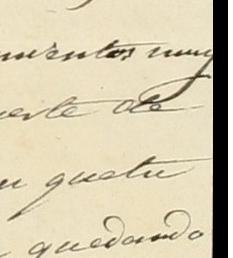 mientos muy
erte de
n quetu
quedando